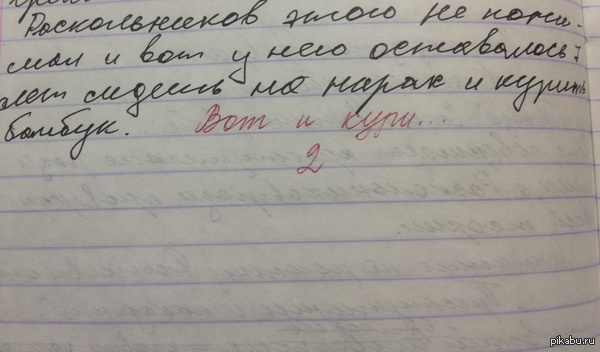 Раскольников этого не пони-
мал и вот у него оставалось 7
лет сидеть на нарах и курить
бамбук. Вот и кури...
2
pikabu.ru